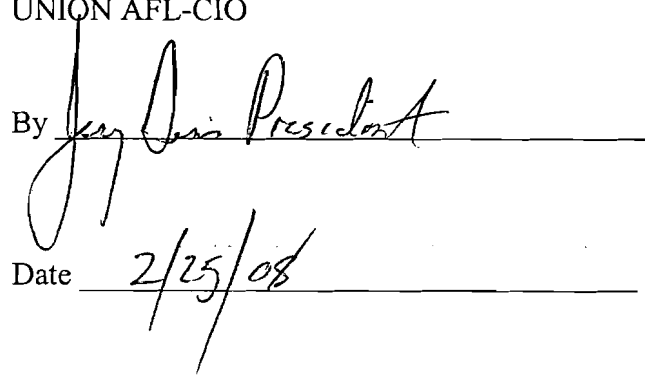 UNION AFL-CIO
By Jerry Davis President
Date 2/25/08